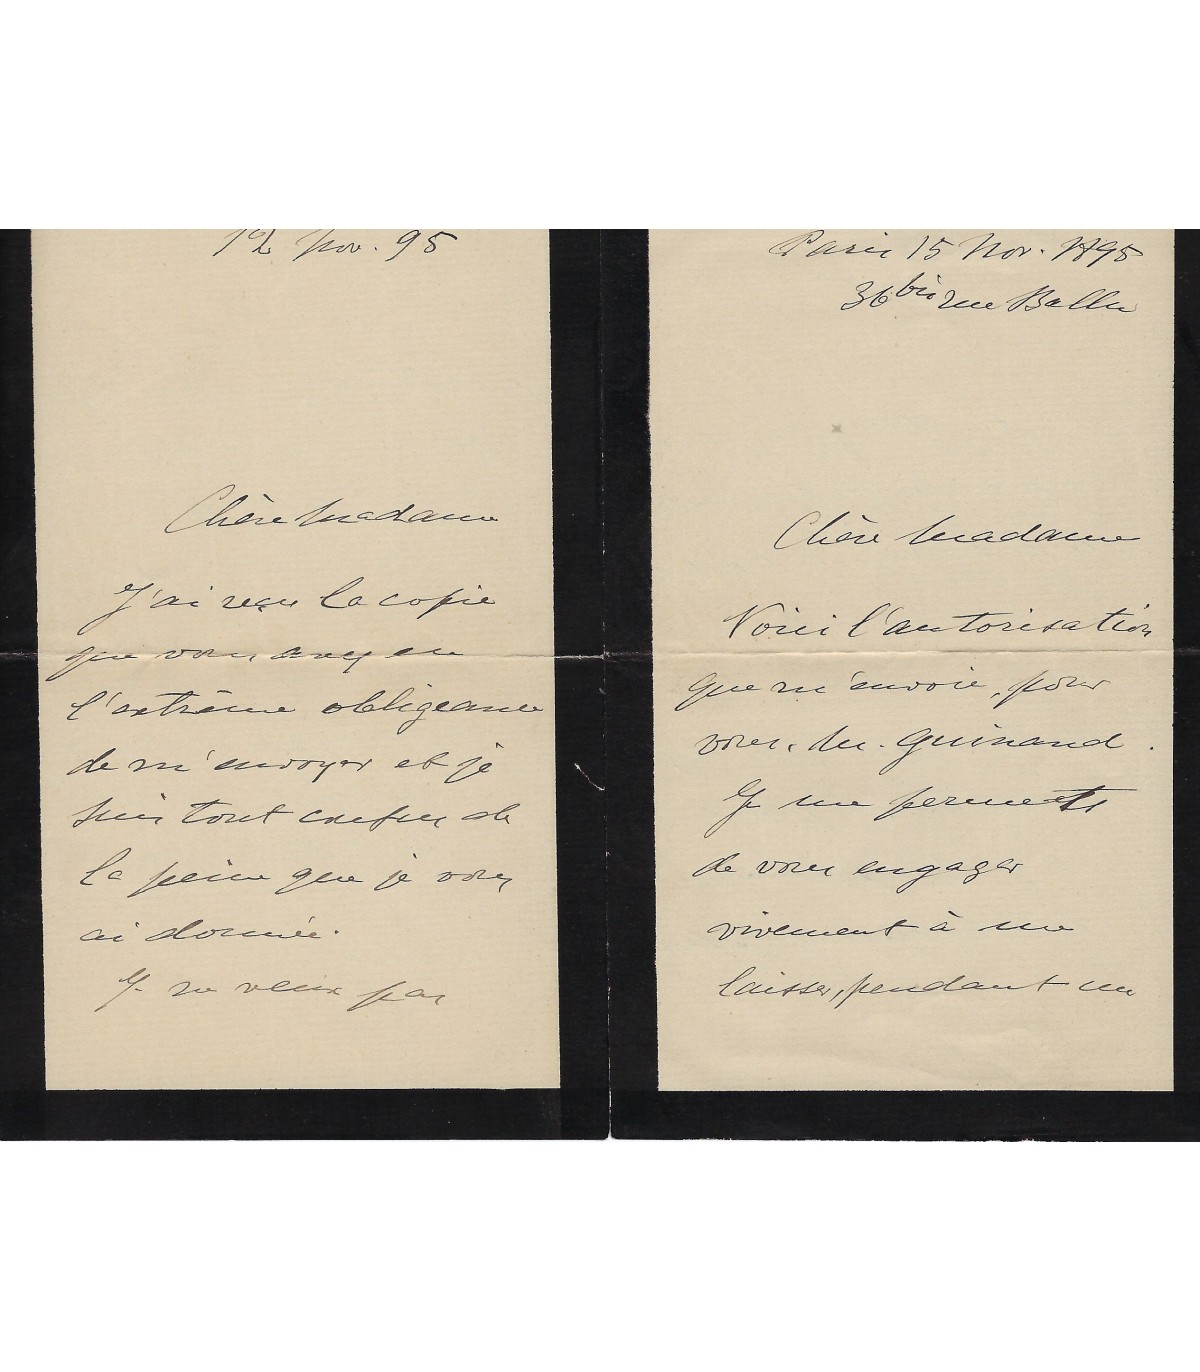 12 Nov. 95
Chère Madame
J'ai reçu la copie
que vous avez eu
l'extrême obligeance
de m'envoyer et je
suis tout confus de
la peine que je vous
ai donnée.
Je ne veux pas
Paris 15 Nov. 1895
36 bis rue Ballu
Chère Madame
Voici l'autorisation
que m'envoie, pour
vous, M. Guinand.
Je me permets
de vous engager
vivement à me
laisser, pendant un